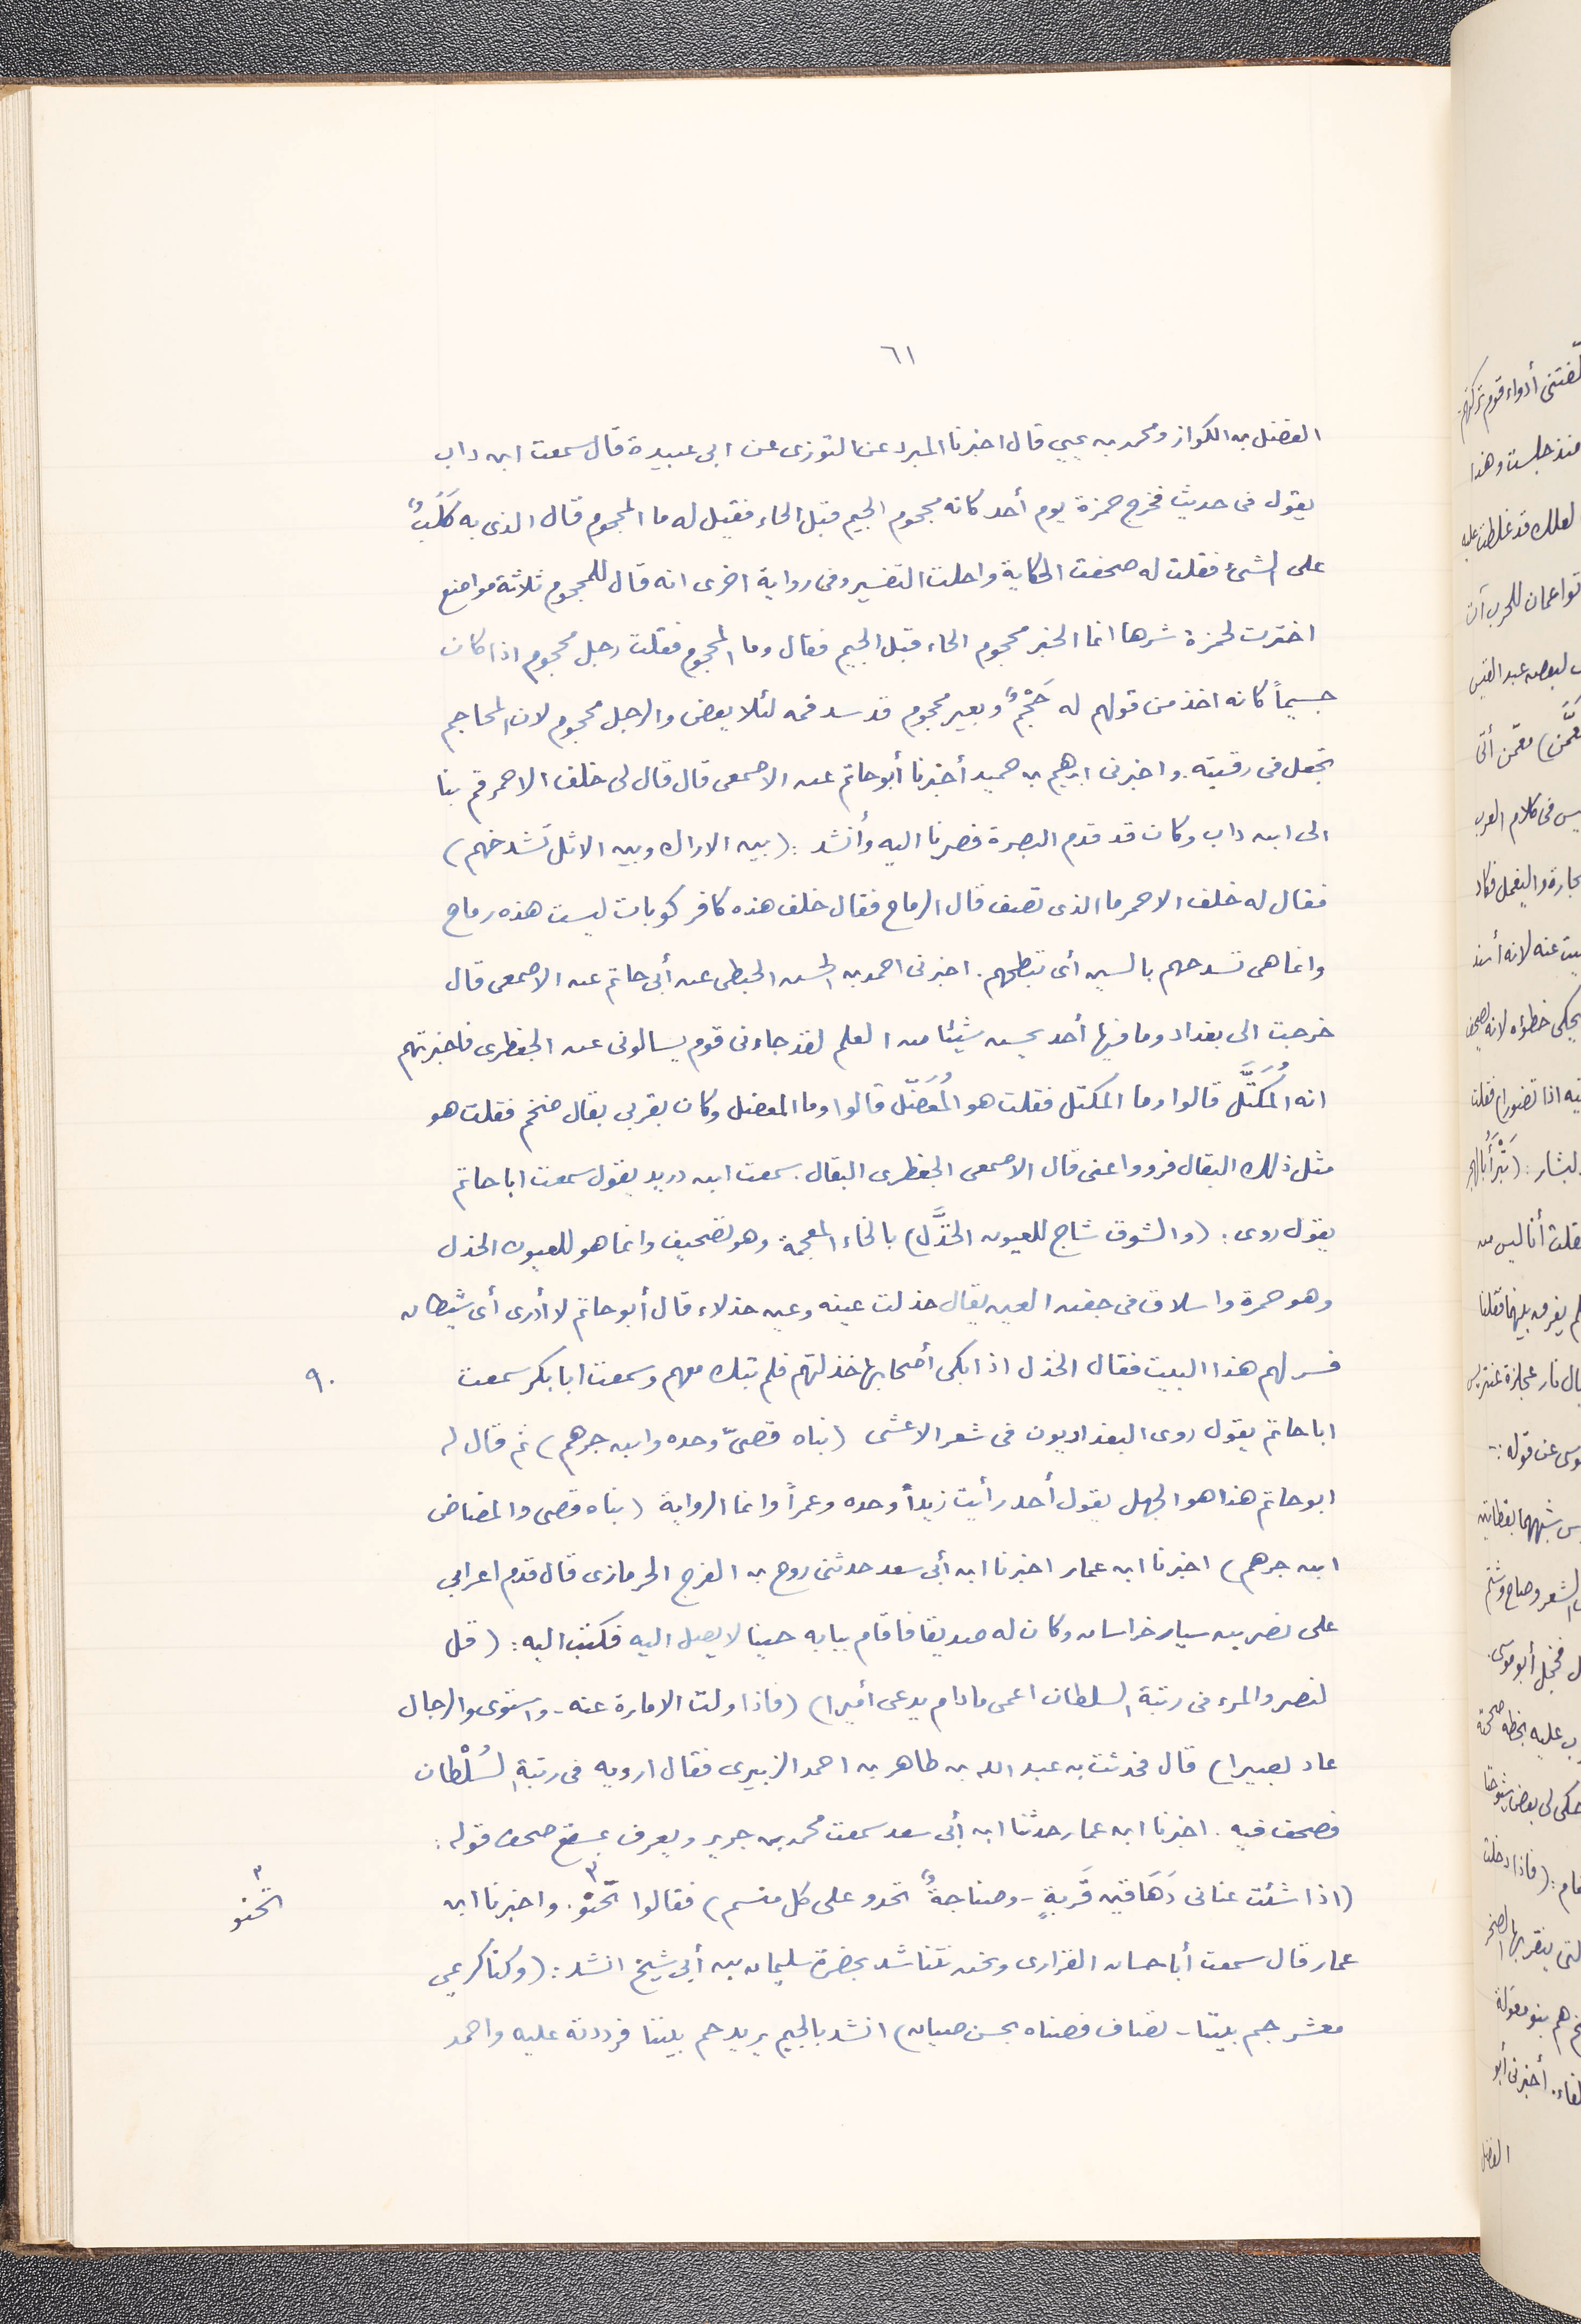 ٦١
الفضل بن الكواز ومحمد بن يحيى قال اخبرنا المبرد عن التوزى عن ابى عبيدة قال سمعت ابن داب
يقول فى حديث فخرج حمزة يوم أحد كانه مجحوم الجيم قبل الحاء فقيل له ما المجحوم قال الذى به كَلَبٌ
على الشئ فقلت له صحفت الحكاية واحلت التفسير وفى رواية اخرى انه قال للمجحوم ثلاثة مواضع
اخترت لحمزة شرها انما الخبر محجوم الحاء قبل الجيم فقال وما المحجوم فقلت رجل محجوم اذا كان
جسيماً كانه اخذ من قولهم له حَجْمٌ وبعير محجوم قد سد فمه لئلا يعض والرجل محجوم لان المحاجم
تجعل فى رقبته. واخبرنى ابرهيم بن حميد أخبرنا أبو حاتم عن الاصمعى قال قال لى خلف الاحمر قم بنا
الى ابن داب وكان قد قدم البصرة فصرنا اليه وأنشد: (بين الاراك وبين الاثل تَشدخهم)
فقال له خلف الاحمر ما الذى تصف قال الرماح فقال خلف هذه كافر كوبات ليست هذه رماح
وانما هى تسدحهم بالسين أى تبطحهم. اخبرنى احمد بن الحسن الحبطى عن أبى حاتم عن الاصمعى قال
خرجت الى بغداد وما فيها أحد يحسن شيئا من العلم لقد جاءنى قوم يسالونى عن الجعظرى فاخبرتهم
انه المُكَتَّل قالوا وما المكتل فقلت هو المُعَضّل قالوا وما المعضل وكان بقربى بقال ضخم فقلت هو
مثل ذلك البقال فرووا عنى قال الاصمعى الجعظرى البقال. سمعت ابن دريد يقول سمعت ابا حاتم
يقول روى: (والشوق شاج للعيون الخذَّل) بالخاء المعجمة وهو تصحيف وانما هو للعيون الحذل
وهو حمرة وانسلاق فى جفن العين يقال حذلت عينه وعين حذلاء قال أبو حاتم لا أدرى أى شيطان
فسر لهم هذا البيت فقال الخذل اذا بكى أصحابها خذلتهم فلم تبك معهم وسمعت ابا بكر سمعت
٩٠
ابا حاتم يقول روى البغداديون فى شعر الاعشى (بناه قصىّ وحده وابن جرهم) ثم قال لى
ابو حاتم هذا هو الجهل يقول أحد رأيت زيداً وحده وعمراً وانما الرواية (بناه قصى والمضاض
ابن جرهم) اخبرنا ابن عمار اخبرنا ابن أبى سعد حدثنى روح بن الفرج الحرمازى قال قدم اعرابى
على نصر بن سيار خراسان وكان له صديقا فاقام ببابه حينا لا يصل اليه فكتب اليه: (قل
لنصر والمرء فى رتبة السلطان اعمى مادام يدعى أميرا) (فاذا ولت الامارة عنه - واستوى والرجال
عاد بصيرا) قال فحدثت به عبد الله بن طاهر بن احمد الزبيرى فقال ارويه فى رتبة السُلْطان
فصحف فيه. اخبرنا ابن عمار حدثنا ابن أبى سعد سمعت محمد بن جرير ويعرف بسقع صحف قوله:
(اذا شئت عنانى دَهَاقين قَريةٍ - وصناجةٌ تحدو على كل منسم) فقالوا تَحْنو٣. واخبرنا ابن
٣ تَحنو
عمار قال سمعت أبا حسان الفزارى ونحن نتناشد بحضرة سليمان بن أبى شيخ انشد: (وكنا كرعى
معشر جم بيتنا - تضاف فصناه بحسن صيان) انشد بالجيم يريد حم بيتنا فرددته عليه واحمد